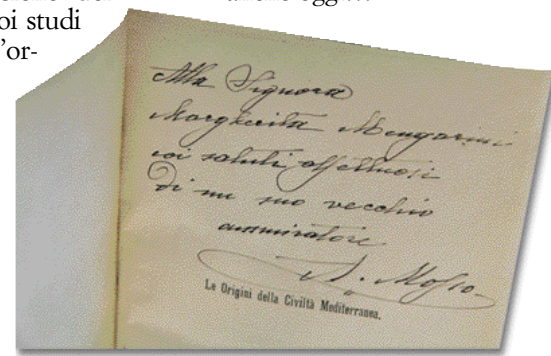 anche oggi...
oi studi
l'or-
Alla Signora
Margherita Mengarini
coi saluti affettuosi
di un suo vecchio
ammiratore
A. Mosso
Le Origini della Civiltà Mediterranea.